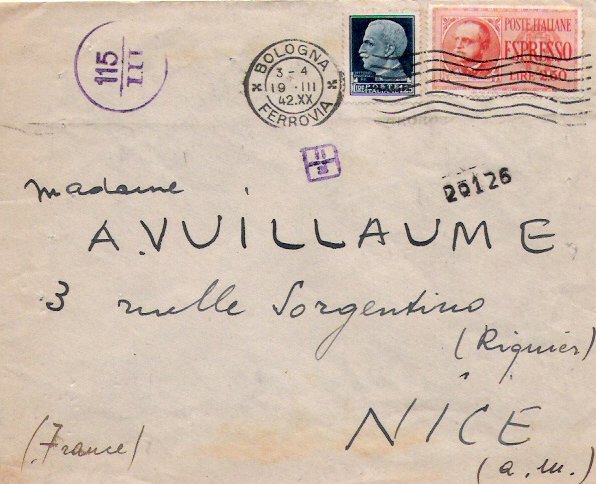 115
III
BOLOGNA
3-4
19 · III
42.XX
FERROVIA
POSTE ITALIANE
ESPRESSO
LIRE 2.50
20126
madame
A.VUILLAUME
3 ruelle Sorgentino
(Riquier)
NICE
(France)
(a.m.)